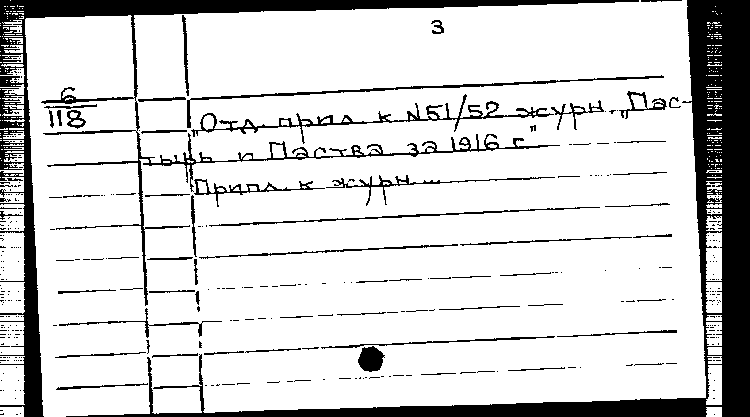 3
6
118
„Отд. прил. к N51/52 журн. „Пас-
тырь и Паства за 1916 г"
Припл. к журн...